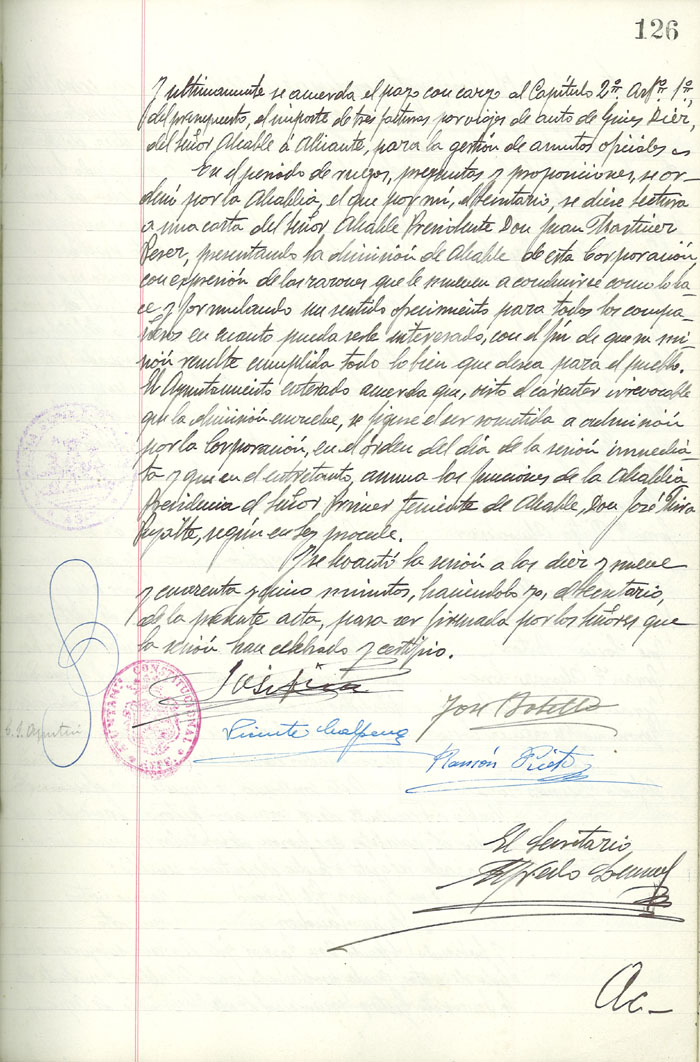 126
Y ultimamente se acuerda el pago con cargo al Capítulo 2º. Artº. 1º.
del presupuesto, el importe de tres facturas por viajes de auto de Ginés Dier,
del Señor Alcalde a Alicante, para la gestión de asuntos oficiales
En el periodo de ruegos, preguntas y proposiciones, se or-
denó por la Alcaldía, el que por mí, el Secretario, se diese lectura
a una carta del Señor Alcalde Presidente Don Juan Martinez
Perez, presentando la dimisión de Alcalde de esta Corporación,
con expresión de las razones que le mueven a conducirse como lo ha-
ce y formulando un sentido ofrecimiento para todos los compa-
ñeros en cuanto pueda serle interesado, con el fin de que su mi-
sión resulte cumplida todo lo bien que desea para el pueblo.
El Ayuntamiento enterado acuerda que, visto el carácter irrevocable
que la dimisión envuelve, se figure el ser sometida a admisión
por la Corporación, en el órden del día de la sesión inmedia-
ta y que en el entretanto, asuma las funciones de la Alcaldía
Presidencia el Señor Primer Teniente de Alcalde, Don José
según en Ley procede.
Y se levantó la sesión a las diez y nueve
y cuarenta y cinco minutos, haciéndolo yo, el Secretario,
de la presente acta, para ser firmada por los Señores que
la sesión han celebrado y certifico.
AYUNTAMTO CONSTITUCIONAL
José Botella
Vicente
Ramón Prieto
El Secretario,
Alfredo
Ac-